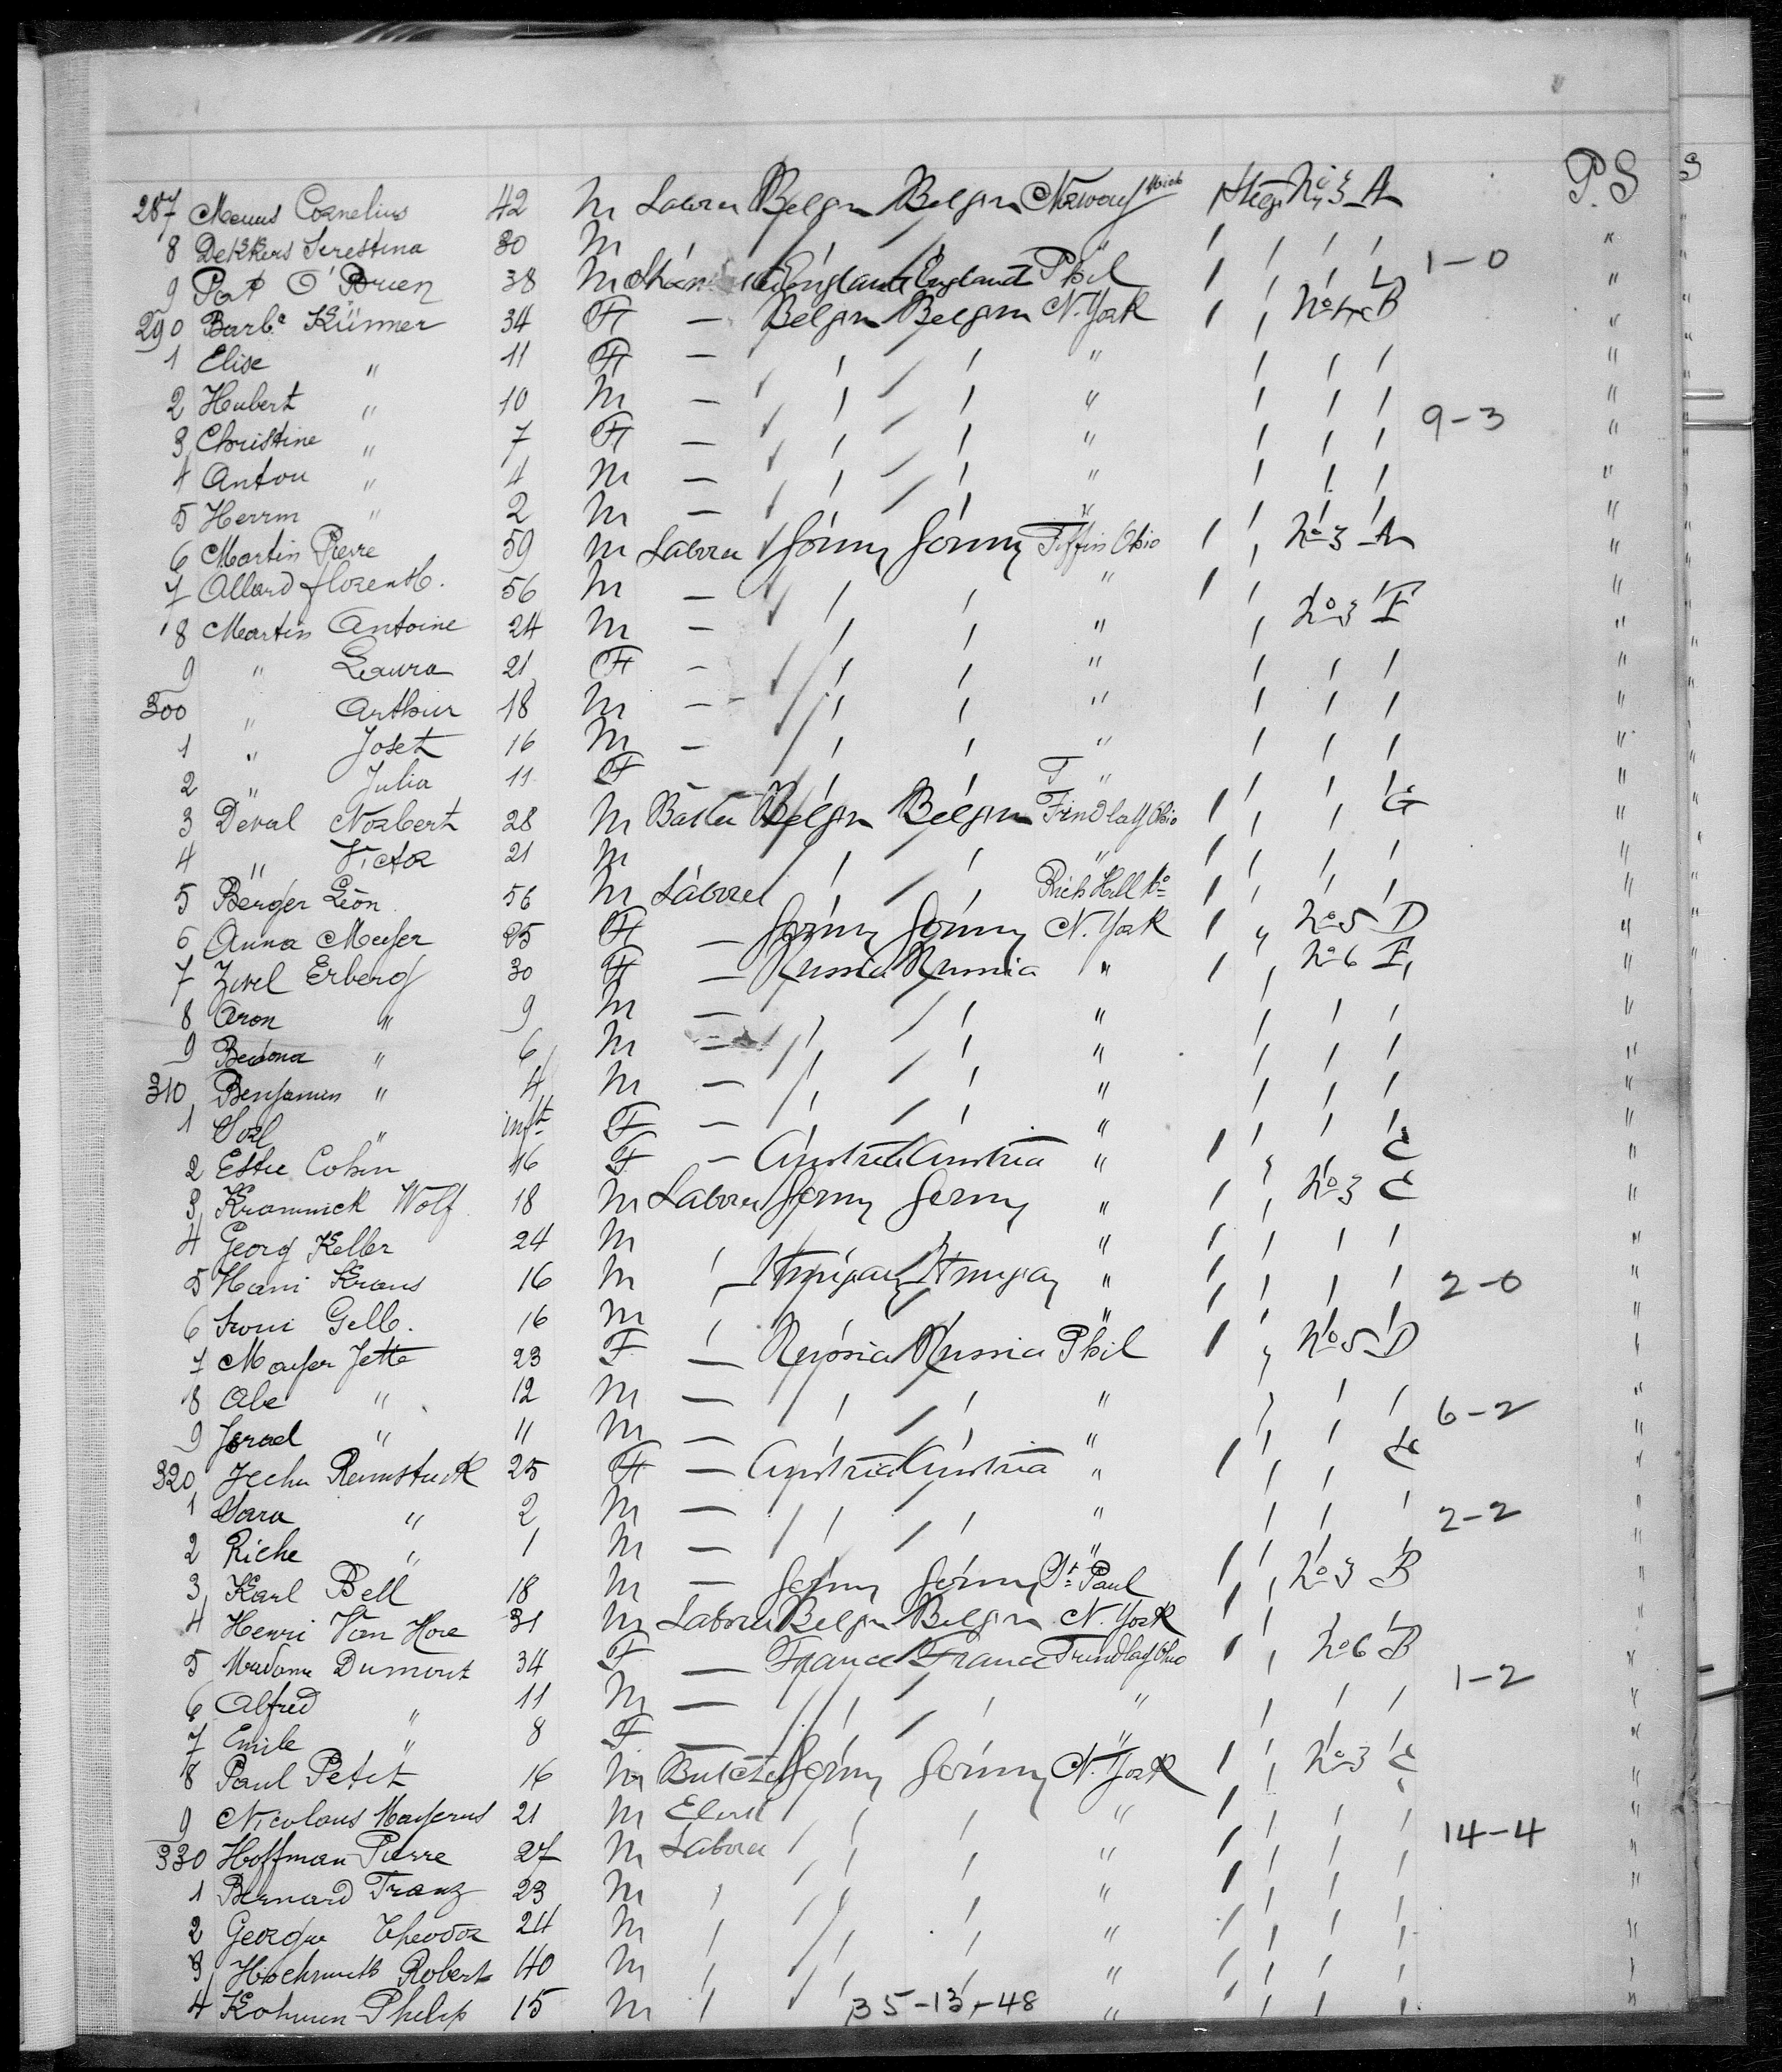 P.S
287 Cornelius 42 M Labrer Belgm Belgm Norway Mich Steg No 3 A
8 Dekkers 30 M / / / " / / / / "
9 Pat O'Brien 38 M England England Phil / / / D 1-0 "
290 Barba Künner 34 F — Belgm Belgm N. York / / No 4 B "
1 Elise " 11 F — / / " / / / "
2 Hubert " 10 M — / / " / / / "
3 Christine " 7 F — / / " / / / 9-3 "
4 Anton " 4 M — / / " / / / "
5 Herrm " 2 M — / / " / / / "
6 Martin Pierre 59 M Labrer Germy Germy Tiffin Ohio / / No 3 A "
7 Allard 56 M — / / " / / / "
8 Martin Antoine 24 M — / / " / No 3 F "
9 " Laura 21 F — / / " / / / "
300 " Arthur 18 M — / / " / / / "
1 " Josef 16 M — / / " / / / "
2 " Julia 11 F — / / " / / / "
3 Deval Norbert 28 M Belgm Belgm Findlay Ohio / / / G "
4 " Victor 21 M / / " / / / / "
5 Berger Léon 56 M Labrer / / Rich Hill Mo / / / / "
6 Anna Meyer 25 F — Germy Germy N. York / " No 5 D "
7 Zivel Erberg 30 F — Russia Russia " / / No 6 F "
8 Aron " 9 M — / / " / / / "
9 " 6 M — / / " / / / "
310 Benjamin " 4 M — / / " / / / "
1 " inft F — / / " / / / "
2 Ester Cohen 46 F — Austria Austria " / / / E "
3 Wolf 18 M Labrer Germy Germy " / / No 3 E "
4 Georg Keller 24 M / / " / / / / "
5 Hani Kraus 16 M / Hungay Hungay " / / / / 2-0 "
6 Gelb. 16 M / / / " / / / / "
7 Mayer Jette 23 F — Russia Russia Phil / / No 5 D "
8 Abe " 12 M — / / " / / / 6-2 "
9 Jsrael " 11 M — / / " / / / "
320 25 F — Austria Austria " / / / E "
1 Sara " 2 M — / / " / / / 2-2 "
2 Riche " 1 M — / / " / / / "
3 Karl Bell 18 M — Germy Germy St Paul / / No 3 B "
4 Henri Van Hove 31 M Labrer Belgm Belgm N. York / / / / "
5 Madame Dumont 34 F — France France Findlay Ohio / / No 6 B "
6 Alfred " 11 M — / / " / / / 1-2 "
7 Emile " 8 F — / / " / / / "
8 Paul Petit 16 M Germy Germy N. York / / No 3 E "
9 Nicolaus Mayerus 21 M / / " / / / / "
330 Hoffman Pierre 27 M Labrer / / " / / / / 14-4 "
1 Bernard Franz 23 M / / / " / / / / "
2 George Theodor 24 M / / / " / / / / "
3 Robert 40 M / / / " / / / / "
4 Philip 15 M / 35-13+48 " / / / / "